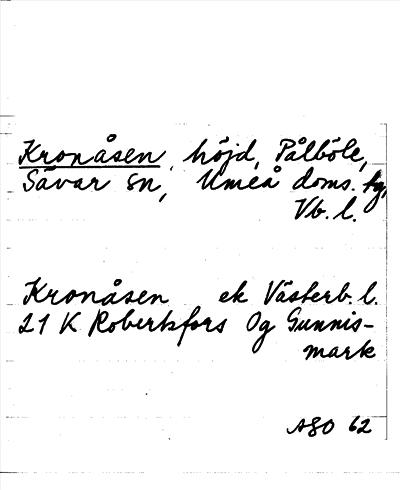 Kronåsen, höjd, Pålböle,
Sävar sn, Umeå doms. tg,
Vb. l.
Kronåsen ek Västerb. l.
21 K Robertsfors Og Gunnis-
mark
ASO 62